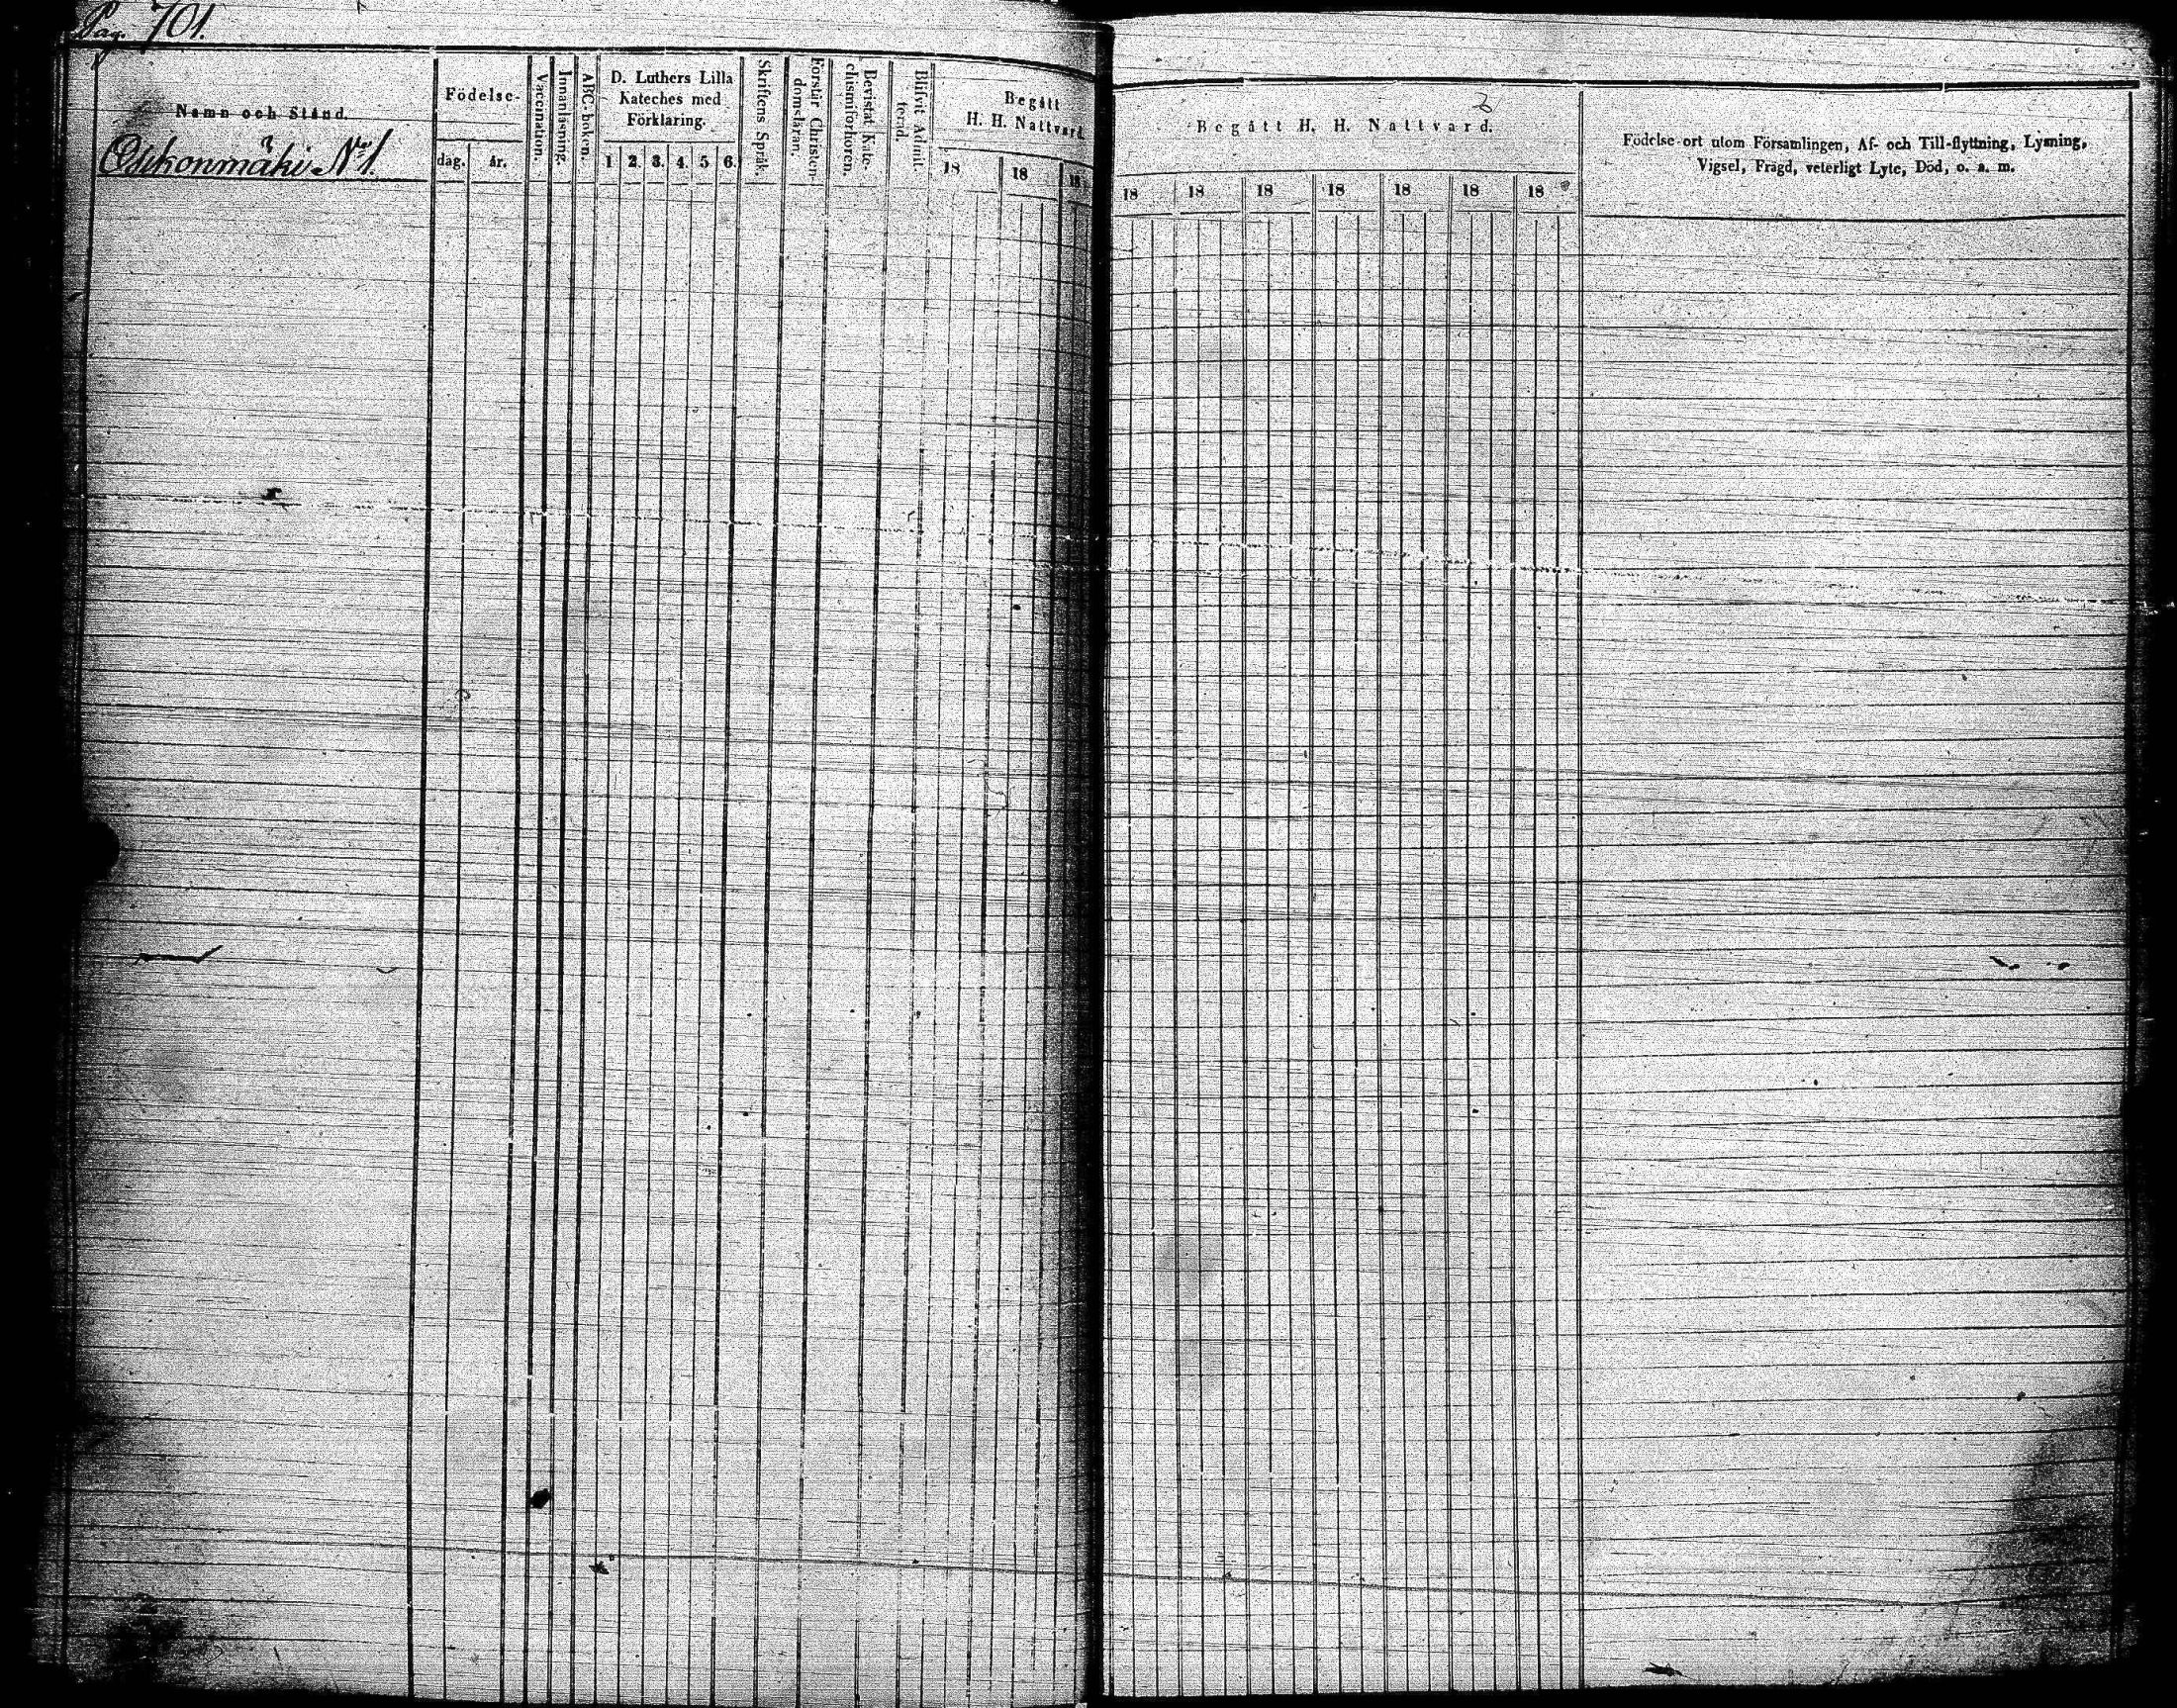 Pag. 701.
Namn och Stånd.
N:o 1.
Födelse-
dag. år.
Vaccination.
Innanläsning.
ABC-boken.
D. Luthers Lilla
Kateches med
Förklaring.
1 2. 3. 4. 5 6.
Skriftens Språk.
Förstår Christen-
domsläran.
Bevistat Kate-
chismiförhören.
Blifvit Admit-
terad.
Begått
H. H. Nattvard.
18 18 18
Begått H. H. Nattvard.
18 18 18 18 18 18 18
Födelse-ort utom Församlingen, Af- och Till-flyttning, Lysning,
Vigsel, Frägd, veterligt Lyte, Död, o. a. m.